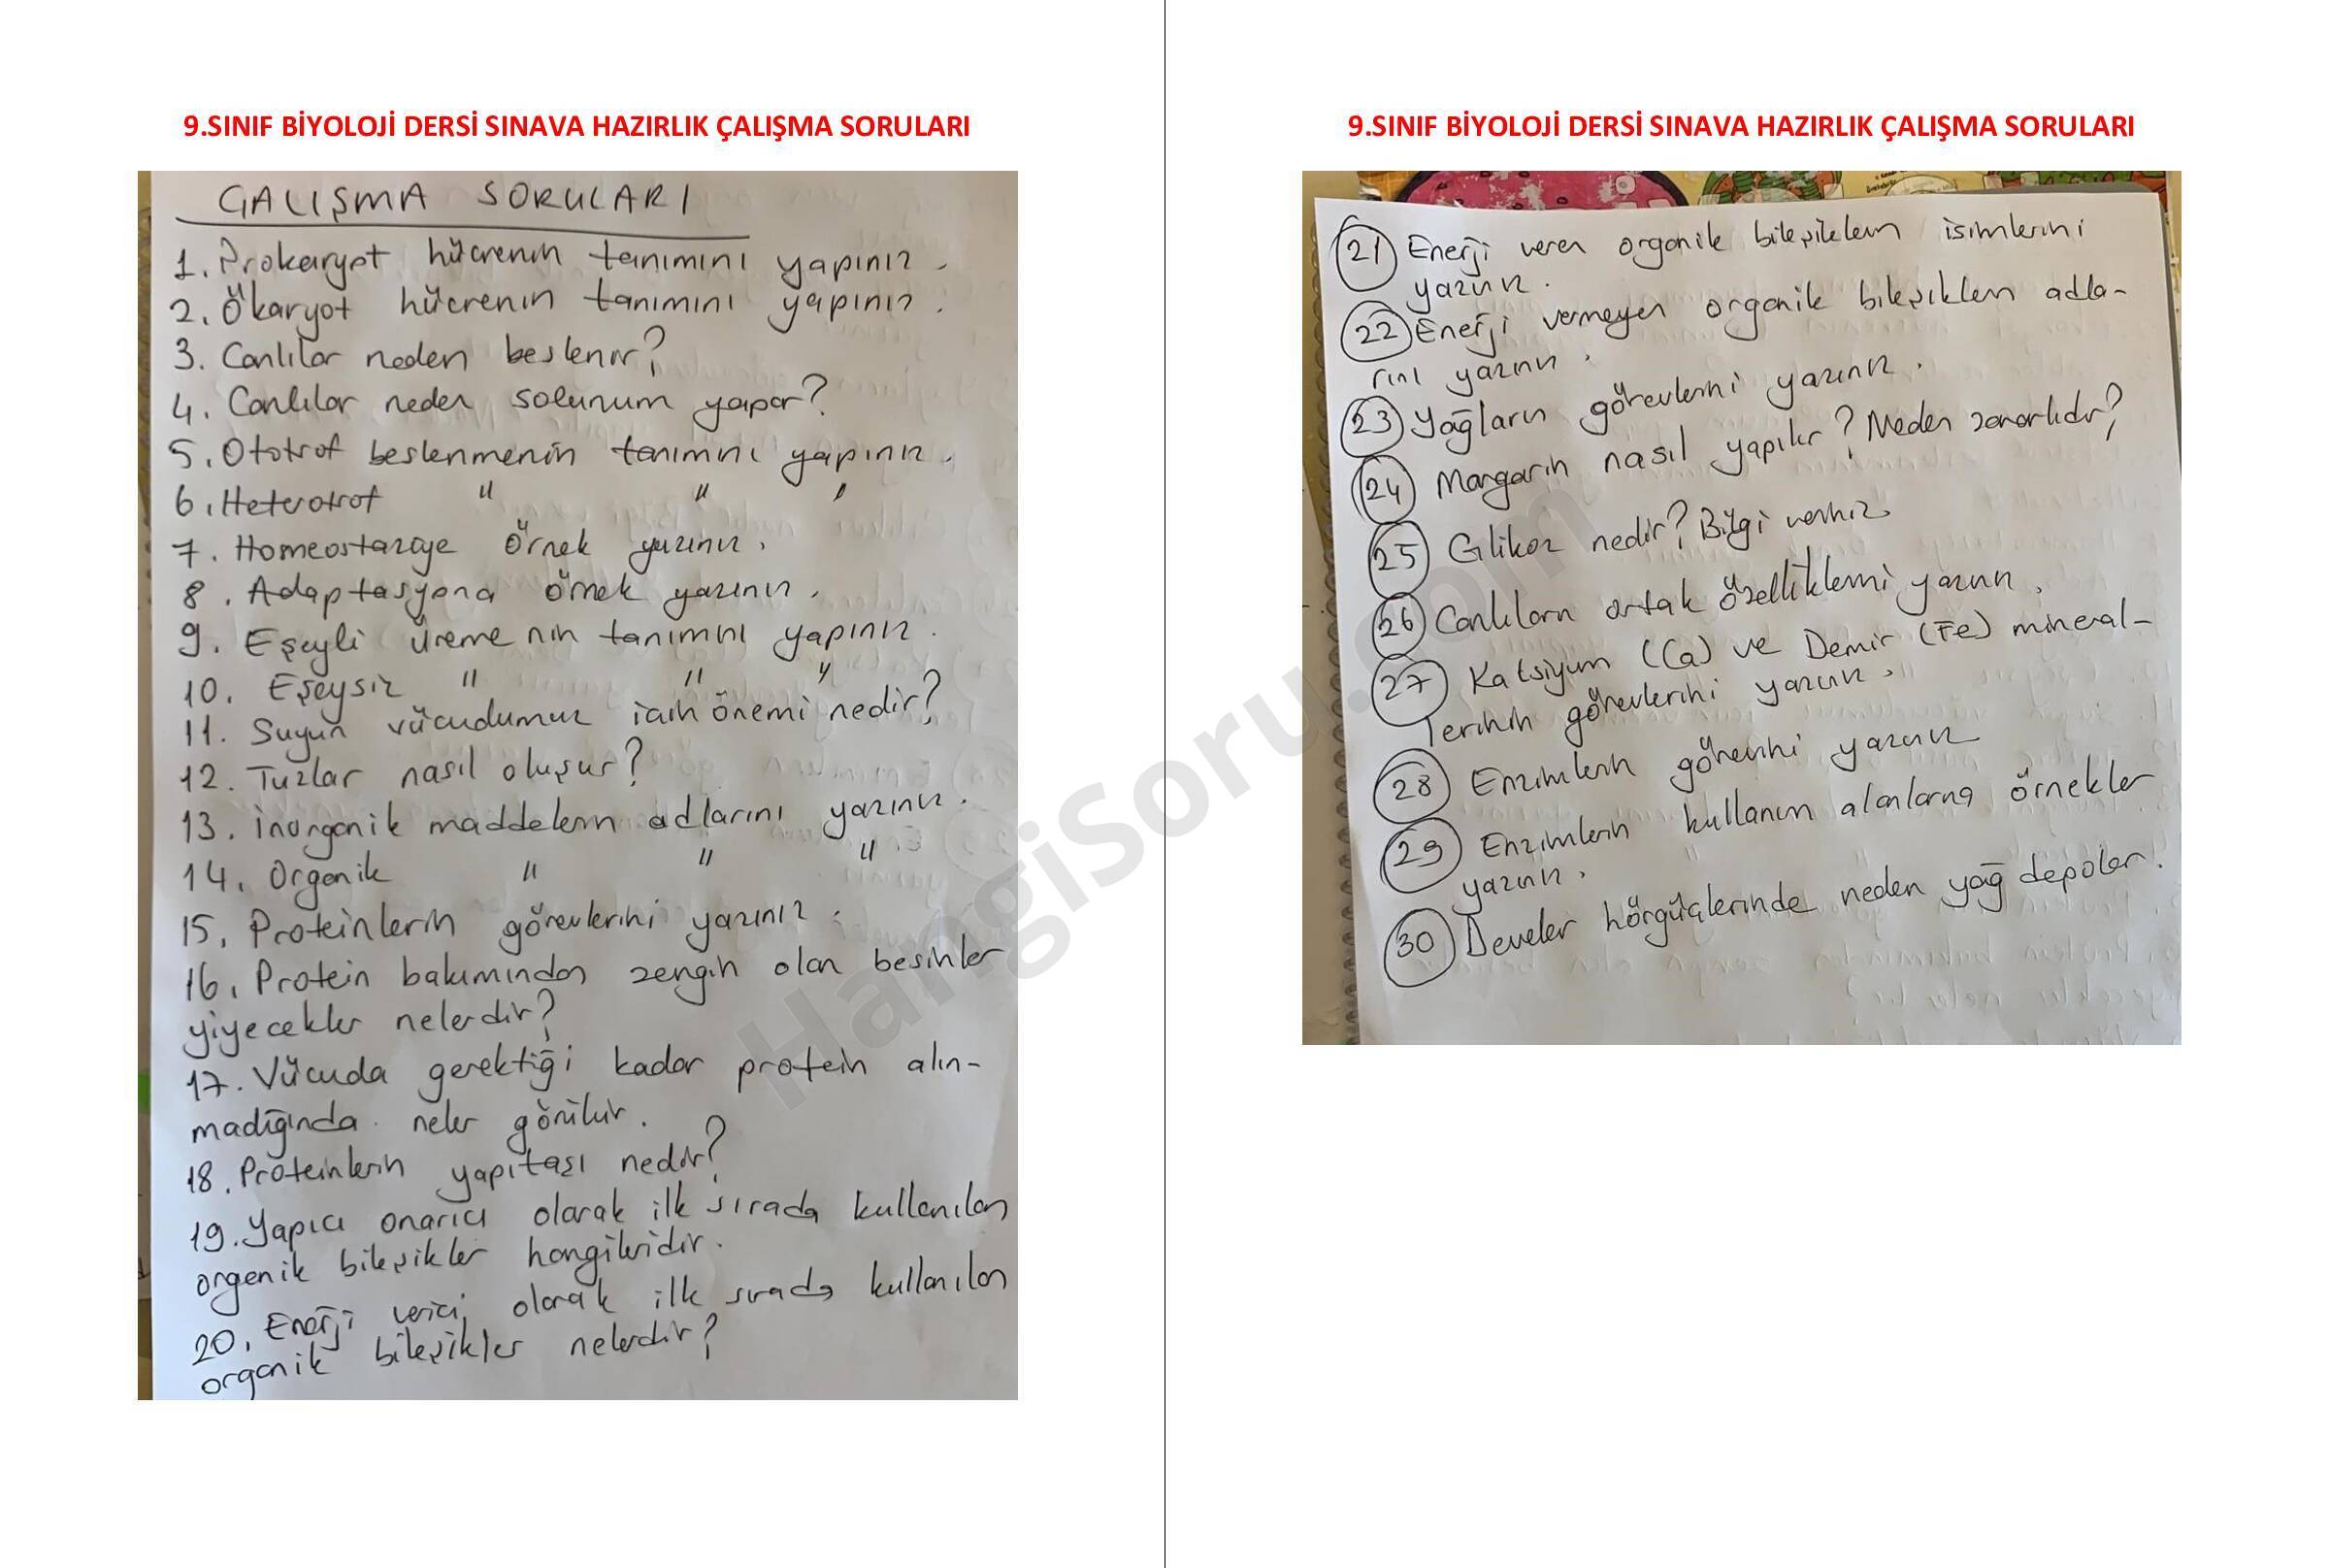 9.SINIF BİYOLOJİ DERSİ SINAVA HAZIRLIK ÇALIŞMA SORULARI
ÇALIŞMA SORULARI
1. Prokaryot hücrenin tanımını yapınız.
2. Ökaryot hücrenin tanımını yapınız.
3. Canlılar neden beslenir?
4. Canlılar neden solunum yapar?
5. Ototrof beslenmenin tanımını yapınız.
6. Heterotrof " " "
7. Homeostaziye örnek yazınız.
8. Adaptasyona örnek yazınız.
9. Eşeyli üremenin tanımını yapınız.
10. Eşeysiz " " "
11. Suyun vücudumuz için önemi nedir?
12. Tuzlar nasıl oluşur?
13. İnorganik maddelerin adlarını yazınız.
14. Organik " " "
15. Proteinlerin görevlerini yazınız.
16. Protein bakımından zengin olan besinler
yiyecekler nelerdir?
17. Vücuda gerektiği kadar protein alın-
madığında neler görülür.
18. Proteinlerin yapıtaşı nedir?
19. Yapıcı onarıcı olarak ilk sırada kullanılan
organik bileşikler hangileridir.
20. Enerji verici olarak ilk sırada kullanılan
organik bileşikler nelerdir?
9.SINIF BİYOLOJİ DERSİ SINAVA HAZIRLIK ÇALIŞMA SORULARI
21 Enerji veren organik bileşiklerin isimlerini
yazınız.
22 Enerji vermeyen organik bileşiklerin adla-
rını yazınız.
23 Yağların görevlerini yazınız.
24 Margarin nasıl yapılır? Neden zararlıdır?
25 Glikoz nedir? Bilgi veriniz.
26 Canlıların ortak özelliklerini yazınız.
27 Kalsiyum (Ca) ve Demir (Fe) mineral-
lerinin görevlerini yazınız.
28 Enzimlerin görevini yazınız
29 Enzimlerin kullanım alanlarına örnekler
yazınız.
30 Develer hörgüçlerinde neden yağ depolar.
HangiSoru.com